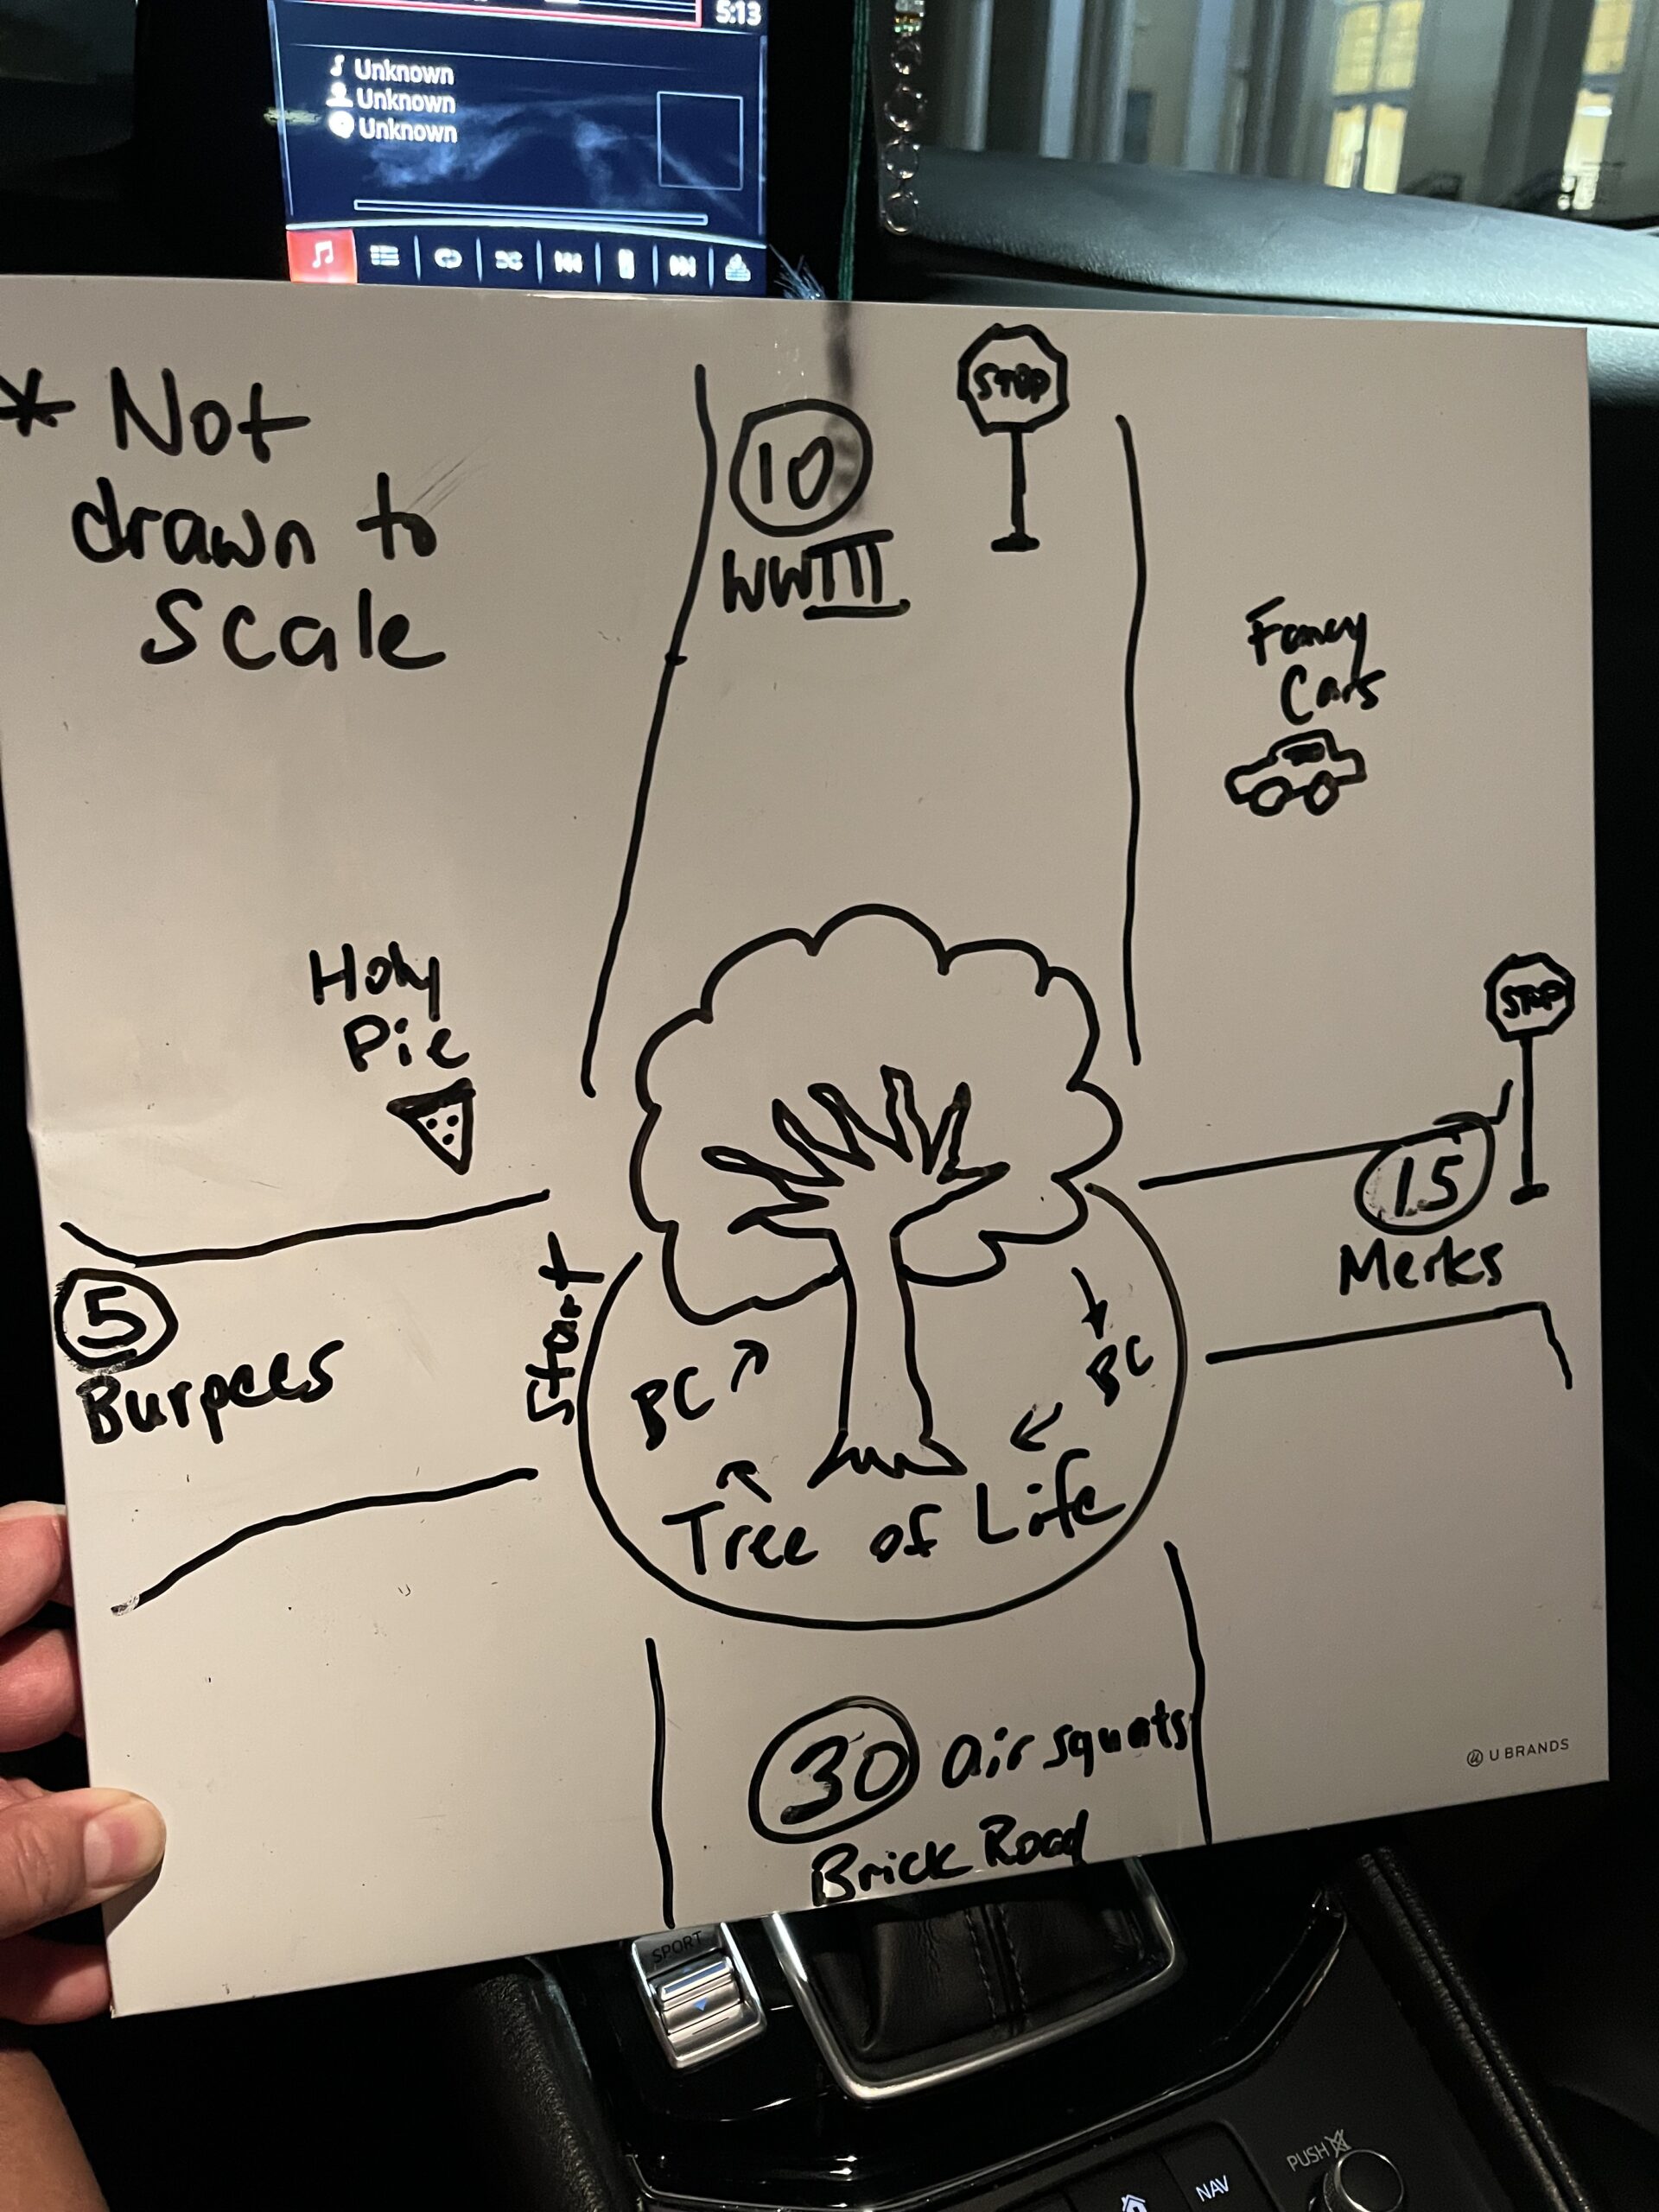 5:13
Unknown
Unknown
Unknown
* Not
drawn to
Scale
10
WWIII
STOP
Fancy
Cars
Holy
Pie
STOP
15
Merks
5
Burpees
Start
BC
BC
Tree of Life
30 air squats
Brick Road
U BRANDS
SPORT
PUSH
NAV